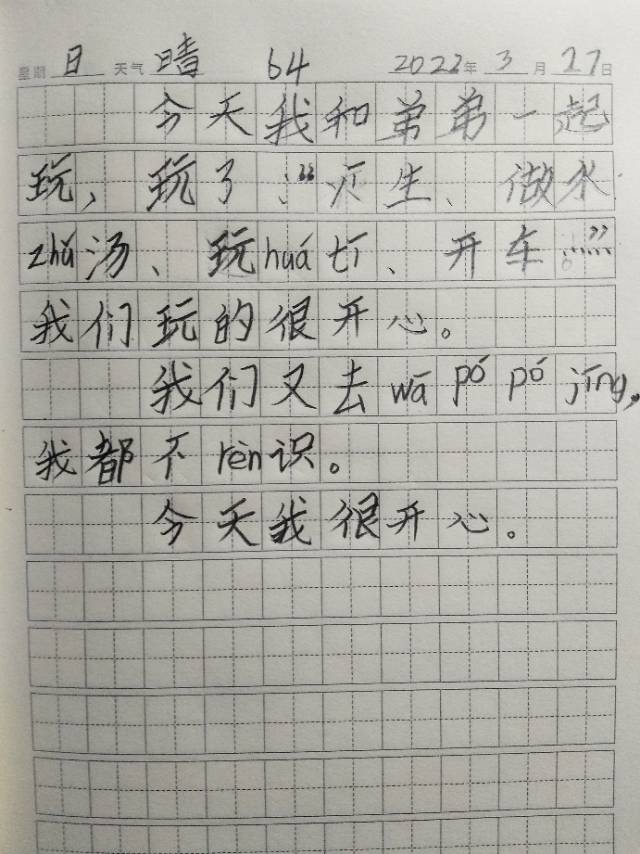 星期 日 天气 晴 64 2022年 3月 27日
今天我和弟弟一起
玩，玩了：“火丁生、做水
zhǔ汤、玩huá tī、开车……”
我们玩的很开心。
我们又去wā pó pó jīng，
我都不rèn识。
今天我很开心。